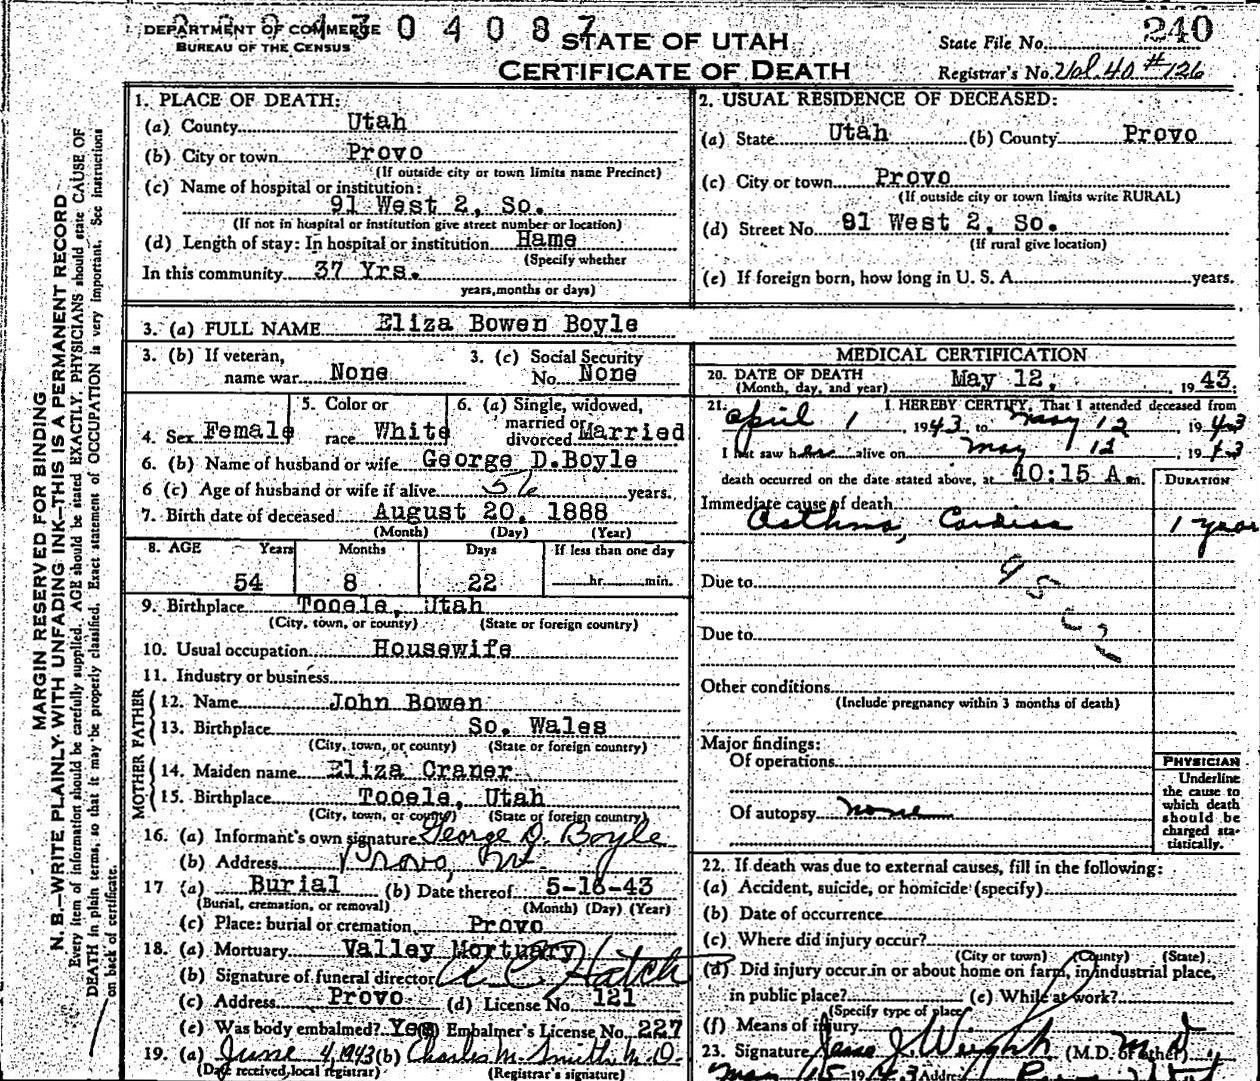 DEPARTMENT OF COMMERCE
BUREAU OF THE CENSUS
0 4 0 8 7
STATE OF UTAH
CERTIFICATE OF DEATH
240
State File No.
Registrar's No. Vol. 40 #126
MARGIN RESERVED FOR BINDING
N. B.—WRITE PLAINLY WITH UNFADING INK—THIS IS A PERMANENT RECORD
Every item of information should be carefully supplied. AGE should be stated EXACTLY. PHYSICIANS should state CAUSE OF
DEATH in plain terms, so that it may be properly classified. Exact statement of OCCUPATION is very important. See instructions
on back of certificate.
1. PLACE OF DEATH:
(a) County Utah
(b) City or town Provo
(If outside city or town limits name Precinct)
(c) Name of hospital or institution:
91 West 2, So.
(If not in hospital or institution give street number or location)
(d) Length of stay: In hospital or institution Hame
(Specify whether
In this community 37 Yrs.
years, months or days)
2. USUAL RESIDENCE OF DECEASED:
(a) State Utah (b) County Provo
(c) City or town Provo
(If outside city or town limits write RURAL)
(d) Street No. 91 West 2, So.
(If rural give location)
(e) If foreign born, how long in U. S. A. years.
3. (a) FULL NAME Eliza Bowen Boyle
3. (b) If veteran,
name war None
3. (c) Social Security
No. None
4. Sex Female
5. Color or
race White
6. (a) Single, widowed,
married or
divorced Married
6. (b) Name of husband or wife George D. Boyle
6 (c) Age of husband or wife if alive 56 years.
7. Birth date of deceased August 20, 1888
(Month) (Day) (Year)
8. AGE Years Months Days If less than one day
54 8 22 hr. min.
9. Birthplace Tooele, Utah
(City, town, or county) (State or foreign country)
10. Usual occupation Housewife
11. Industry or business
FATHER
12. Name John Bowen
13. Birthplace So. Wales
(City, town, or county) (State or foreign country)
MOTHER
14. Maiden name Eliza Craner
15. Birthplace Tooele, Utah
(City, town, or county) (State or foreign country)
16. (a) Informant's own signature George D. Boyle
(b) Address Provo, Ut.
17 (a) Burial (b) Date thereof 5-16-43
(Burial, cremation, or removal) (Month) (Day) (Year)
(c) Place: burial or cremation Provo
18. (a) Mortuary Valley Mortuary
(b) Signature of funeral director A C Hatch
(c) Address Provo (d) License No. 121
(e) Was body embalmed? Yes Embalmer's License No. 227
19. (a) June 4, 1943 (b) Charles M. Smith M. D.
(Date received local registrar) (Registrar's signature)
MEDICAL CERTIFICATION
20. DATE OF DEATH
(Month, day, and year) May 12, 1943.
21. I HEREBY CERTIFY, That I attended deceased from
April 1 1943, to May 12 1943
I last saw her alive on May 12 1943
death occurred on the date stated above, at 10:15 A m.
DURATION
Immediate cause of death
Asthma, Cardiac 1 year
Due to
Due to
Other conditions
(Include pregnancy within 3 months of death)
Major findings:
Of operations
Of autopsy none
PHYSICIAN
Underline
the cause to
which death
should be
charged sta-
tistically.
22. If death was due to external causes, fill in the following:
(a) Accident, suicide, or homicide (specify)
(b) Date of occurrence
(c) Where did injury occur?
(City or town) (County) (State)
(d) Did injury occur in or about home on farm, in industrial place,
in public place? (e) While at work?
(Specify type of place)
(f) Means of injury
23. Signature J. Weight M.D. (M.D. or other)
May 15 1943 Address Provo Utah